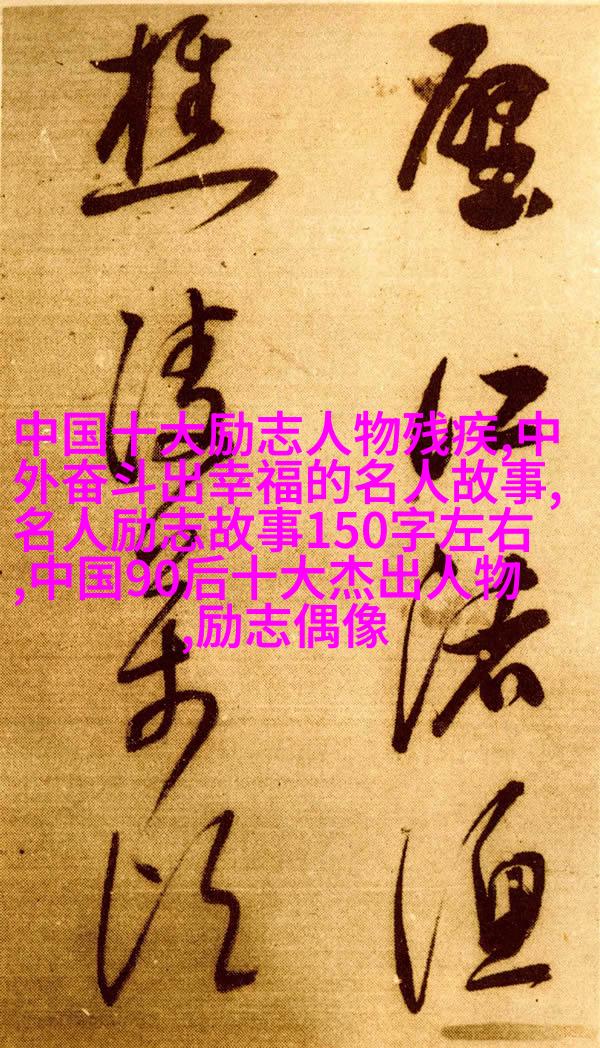 中国十大励志人物残疾,中
外奋斗出幸福的名人故事,
名人励志故事150字左右
,中国90后十大杰出人物
,励志偶像
江渚漁
樵